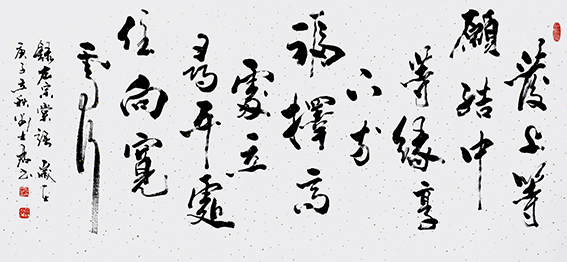 發上等
願結中
等緣享
下等
福擇高
處立
尋平處
住向寬
處行
錄左宗棠語歲在
庚子秋劉士書